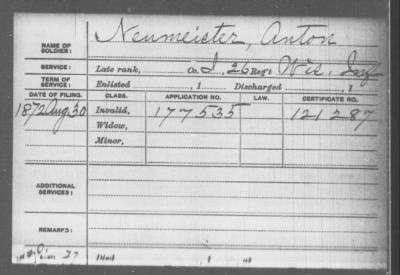 NAME OF SOLDIER: Neumeister, Anton
SERVICE: Late rank, Co. I, 26 Reg't Wis. Inf
TERM OF SERVICE: Enlisted , 1 Discharged , 1
DATE OF FILING. CLASS. APPLICATION NO. LAW. CERTIFICATE NO.
1872 Aug 30 Invalid, 177535 121287
Widow,
Minor,
ADDITIONAL SERVICES:
REMARKS: